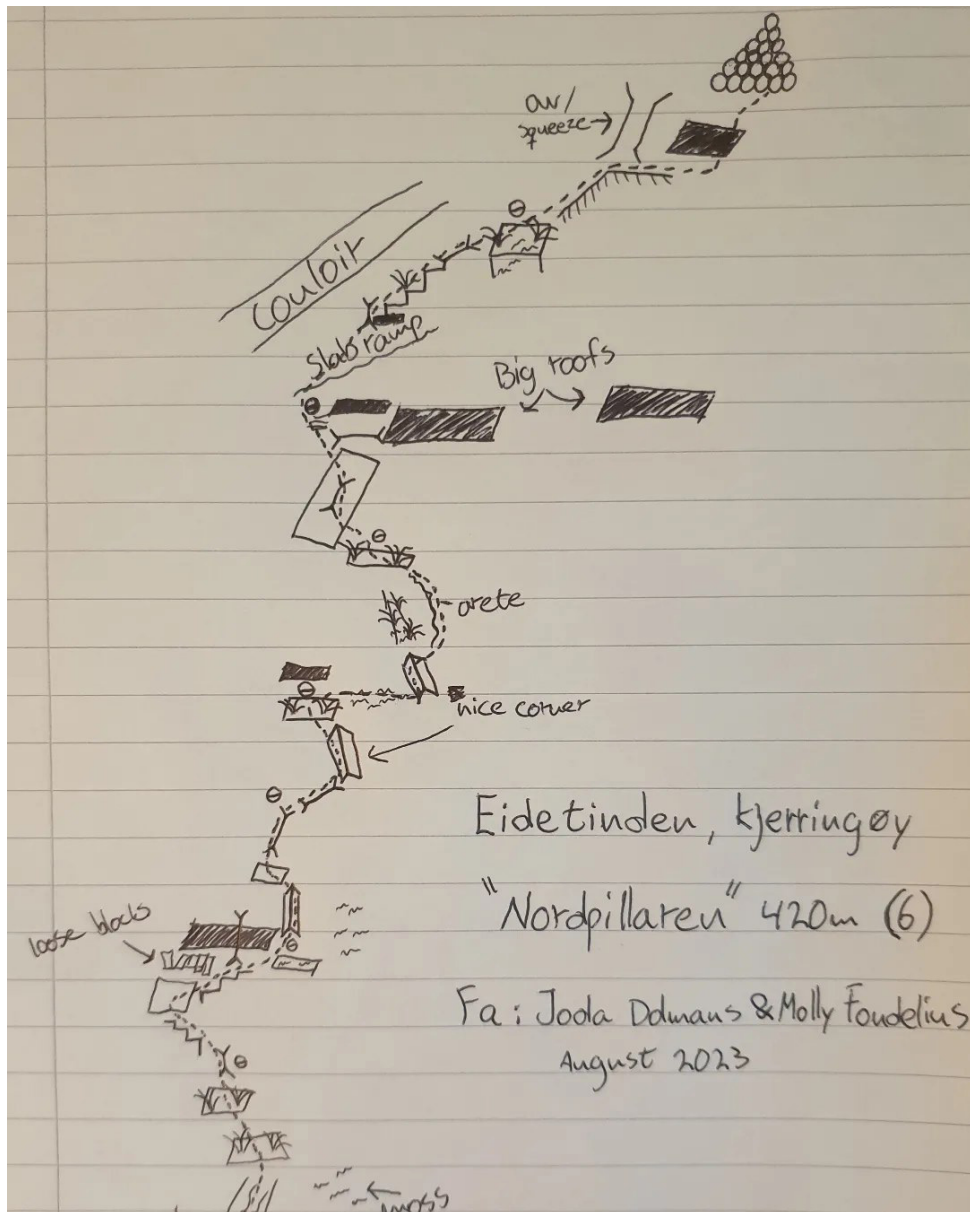 ow/
squeeze
couloir
Slab ramp
Big roofs
arete
nice corner
Eidetinden, kjerringøy
"Nordpillaren" 420m (6)
loose blocks
Fa: Joda Dolmans & Molly Fondelius
August 2023
moss